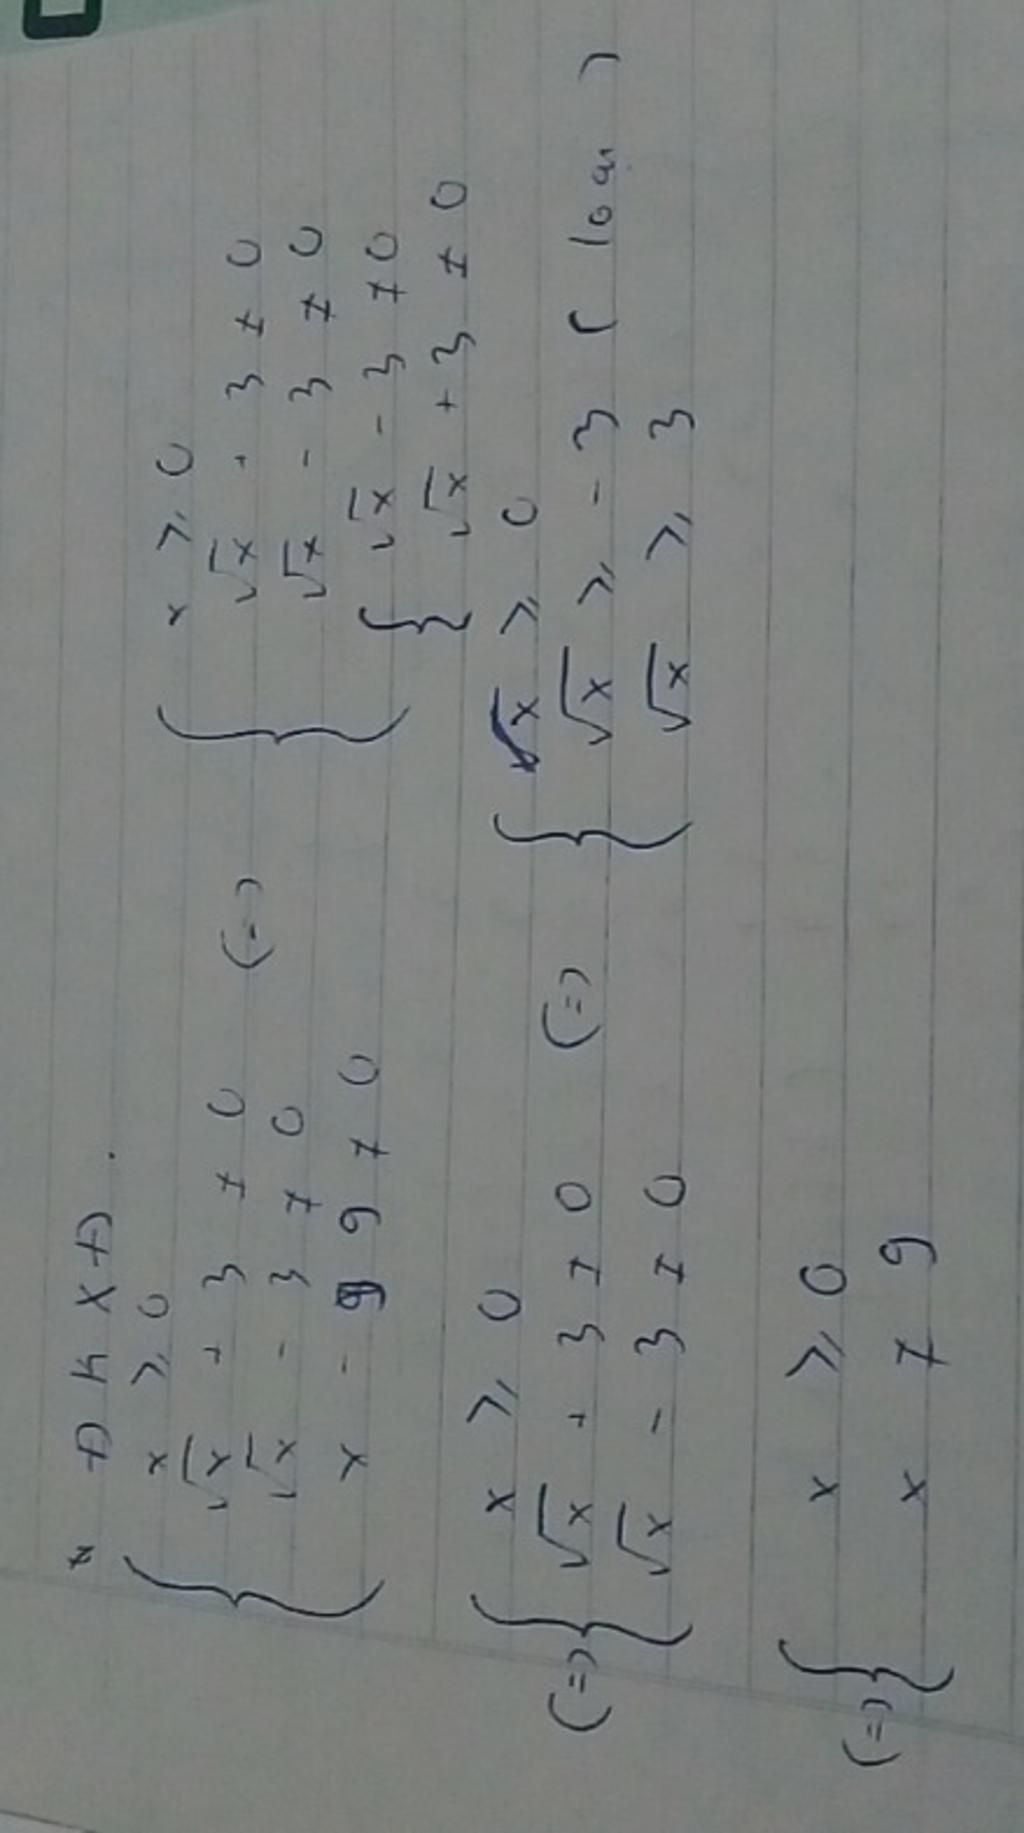 * ĐKXĐ.
x ⩾ 0
√x + 3 ≠ 0
√x - 3 ≠ 0
x - 9 ≠ 0
(=)
x ⩾ 0
√x + 3 ≠ 0
√x - 3 ≠ 0
√x - 3 ≠ 0
√x + 3 ≠ 0
(=)
x ⩾ 0
√x + 3 ≠ 0
√x - 3 ≠ 0
(=)
x ⩾ 0
√x ⩾ - 3 ( loại )
√x ⩾ 3
(=)
x ⩾ 0
x ≠ 9